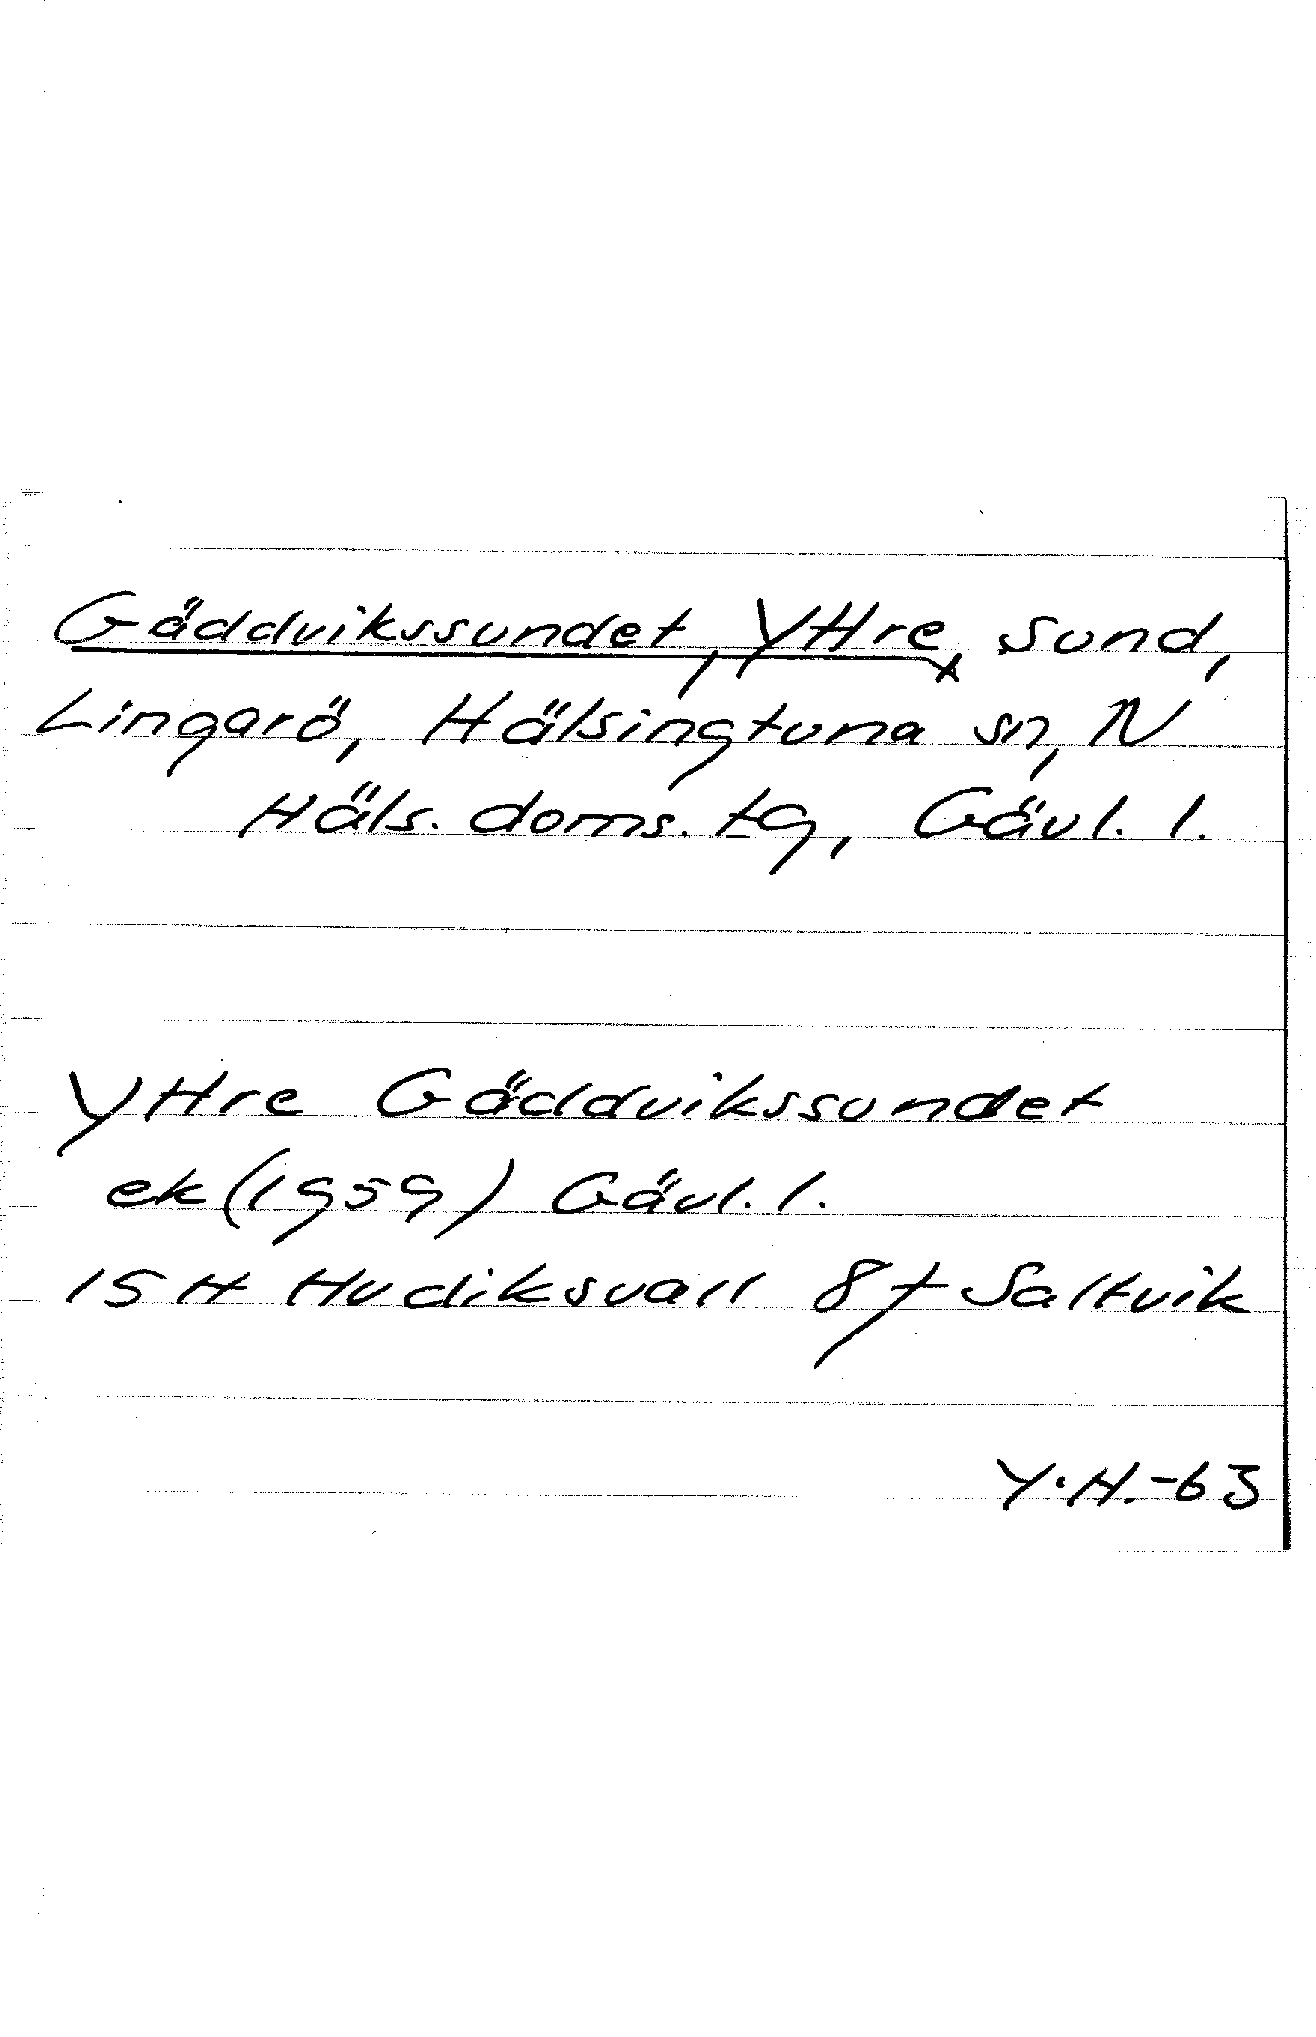 Gäddvikssundet, Yttre, sund,
Lingarö, Hälsingtuna sn, N
Häls. doms. tg, Gävl. l.
Yttre Gäddvikssundet
ek (1959) Gävl. l.
15 H Hudiksvall 8f Saltvik
Y.H.-63